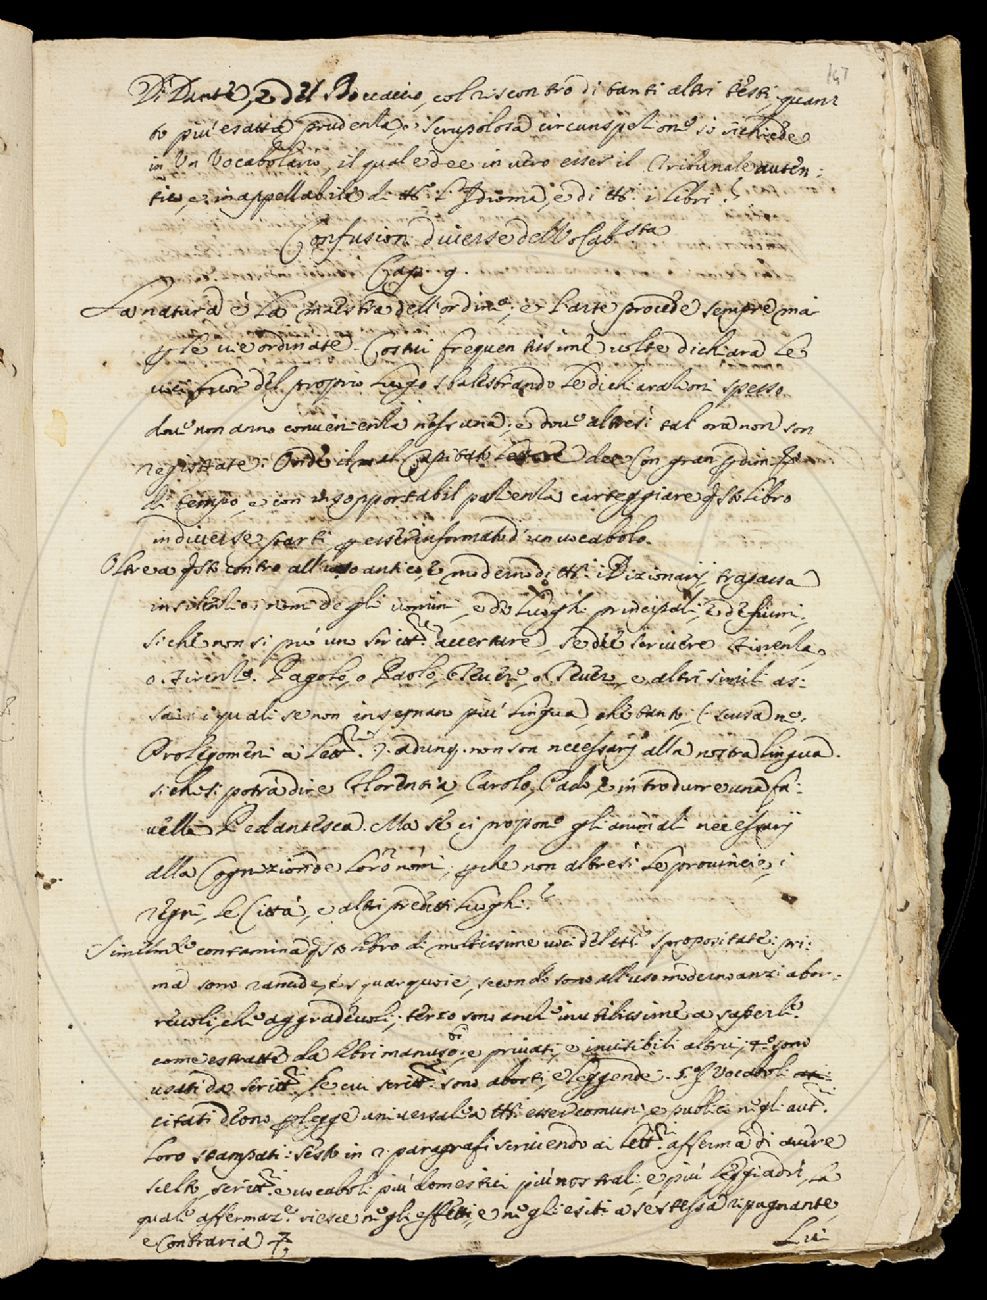 147
Di Dante, e del Boccaccio, col riscontro di tanti altri testi, quan=
to più esatta prudenza, e scrupolosa circunspezione si richiede
in Un Vocabolario, il quale dee in vero esser il Tribunale auten=
tico, e inappellabile di tt.o l'Idioma, e di tt.i i libri.
Confusioni diverse del Vocab.ista
Cap. 9.
La natura è la maestra dell'ordine, e l'arte procede sempre mai
per le vie ordinate. Costui frequentissime volte dichiara le
voci fuor del proprio luogo sbalestrando le dichiarazioni spesso
dove non anno convenienza nessuna; e dove altresì tal ora non son
registrate: Onde il mal capitato lettore dee con gran perdim.to
di tempo, e con insopportabil pazienza carteggiare q.sto libro
in diverse parti per esser informato d'un vocabolo.
Oltre a q.sto contro all'uso antico, e moderno di tt.i i Dizionarij trapassa
in silenzio i nomi degli uomini, e de luoghi principali, e de fiumi,
siche non si può un scritt.re accertare, se dee scrivere Fiorenza,
o Firenze. Pagolo, o Paolo, e altri simili as=
sai: i quali se non insegnan più lingua, che tanto, (scusa ne,
Prolegomeni ai Lett.ri). adunq. non son necessarij alla nostra lingua.
siche si potrà dire Florentia, Carolo, Paulo, e introdurre una fa=
vella Pedantesca. Ma se ci propone gli animali necessarij
alla Cognizione de loro nomi, perche non altresì le provincie, i
regni, le Città, e altri predetti luoghi.
Similm.te contamina q.sto libro di moltissime voci del tt.o spropositate: pri=
ma sono rancide, e squarquoie, secondo sono all'uso moderno anzi abor=
revoli, che aggradevoli; terzo sono anche inutilissime a sapersi
come estratte da libri manuscr.i e privati, e invisibili altrui; 4.o sono
usati da scritt.ri le cui scritt.re sono aborti, e leggende. 5.o I Vocaboli
citati deono per legge universale a tt.i esser comuni, e publici negli aut.ri
loro stampati: sesto in 2 paragrafi scrivendo ai Lett.ri afferma di avere
scelto, scritt.ri e vocaboli più domestici più nostrali, e più leggiadri, la
quale affermaz.e riesce negli effetti, e negli esiti a se stessa ripugnante,
e Contraria